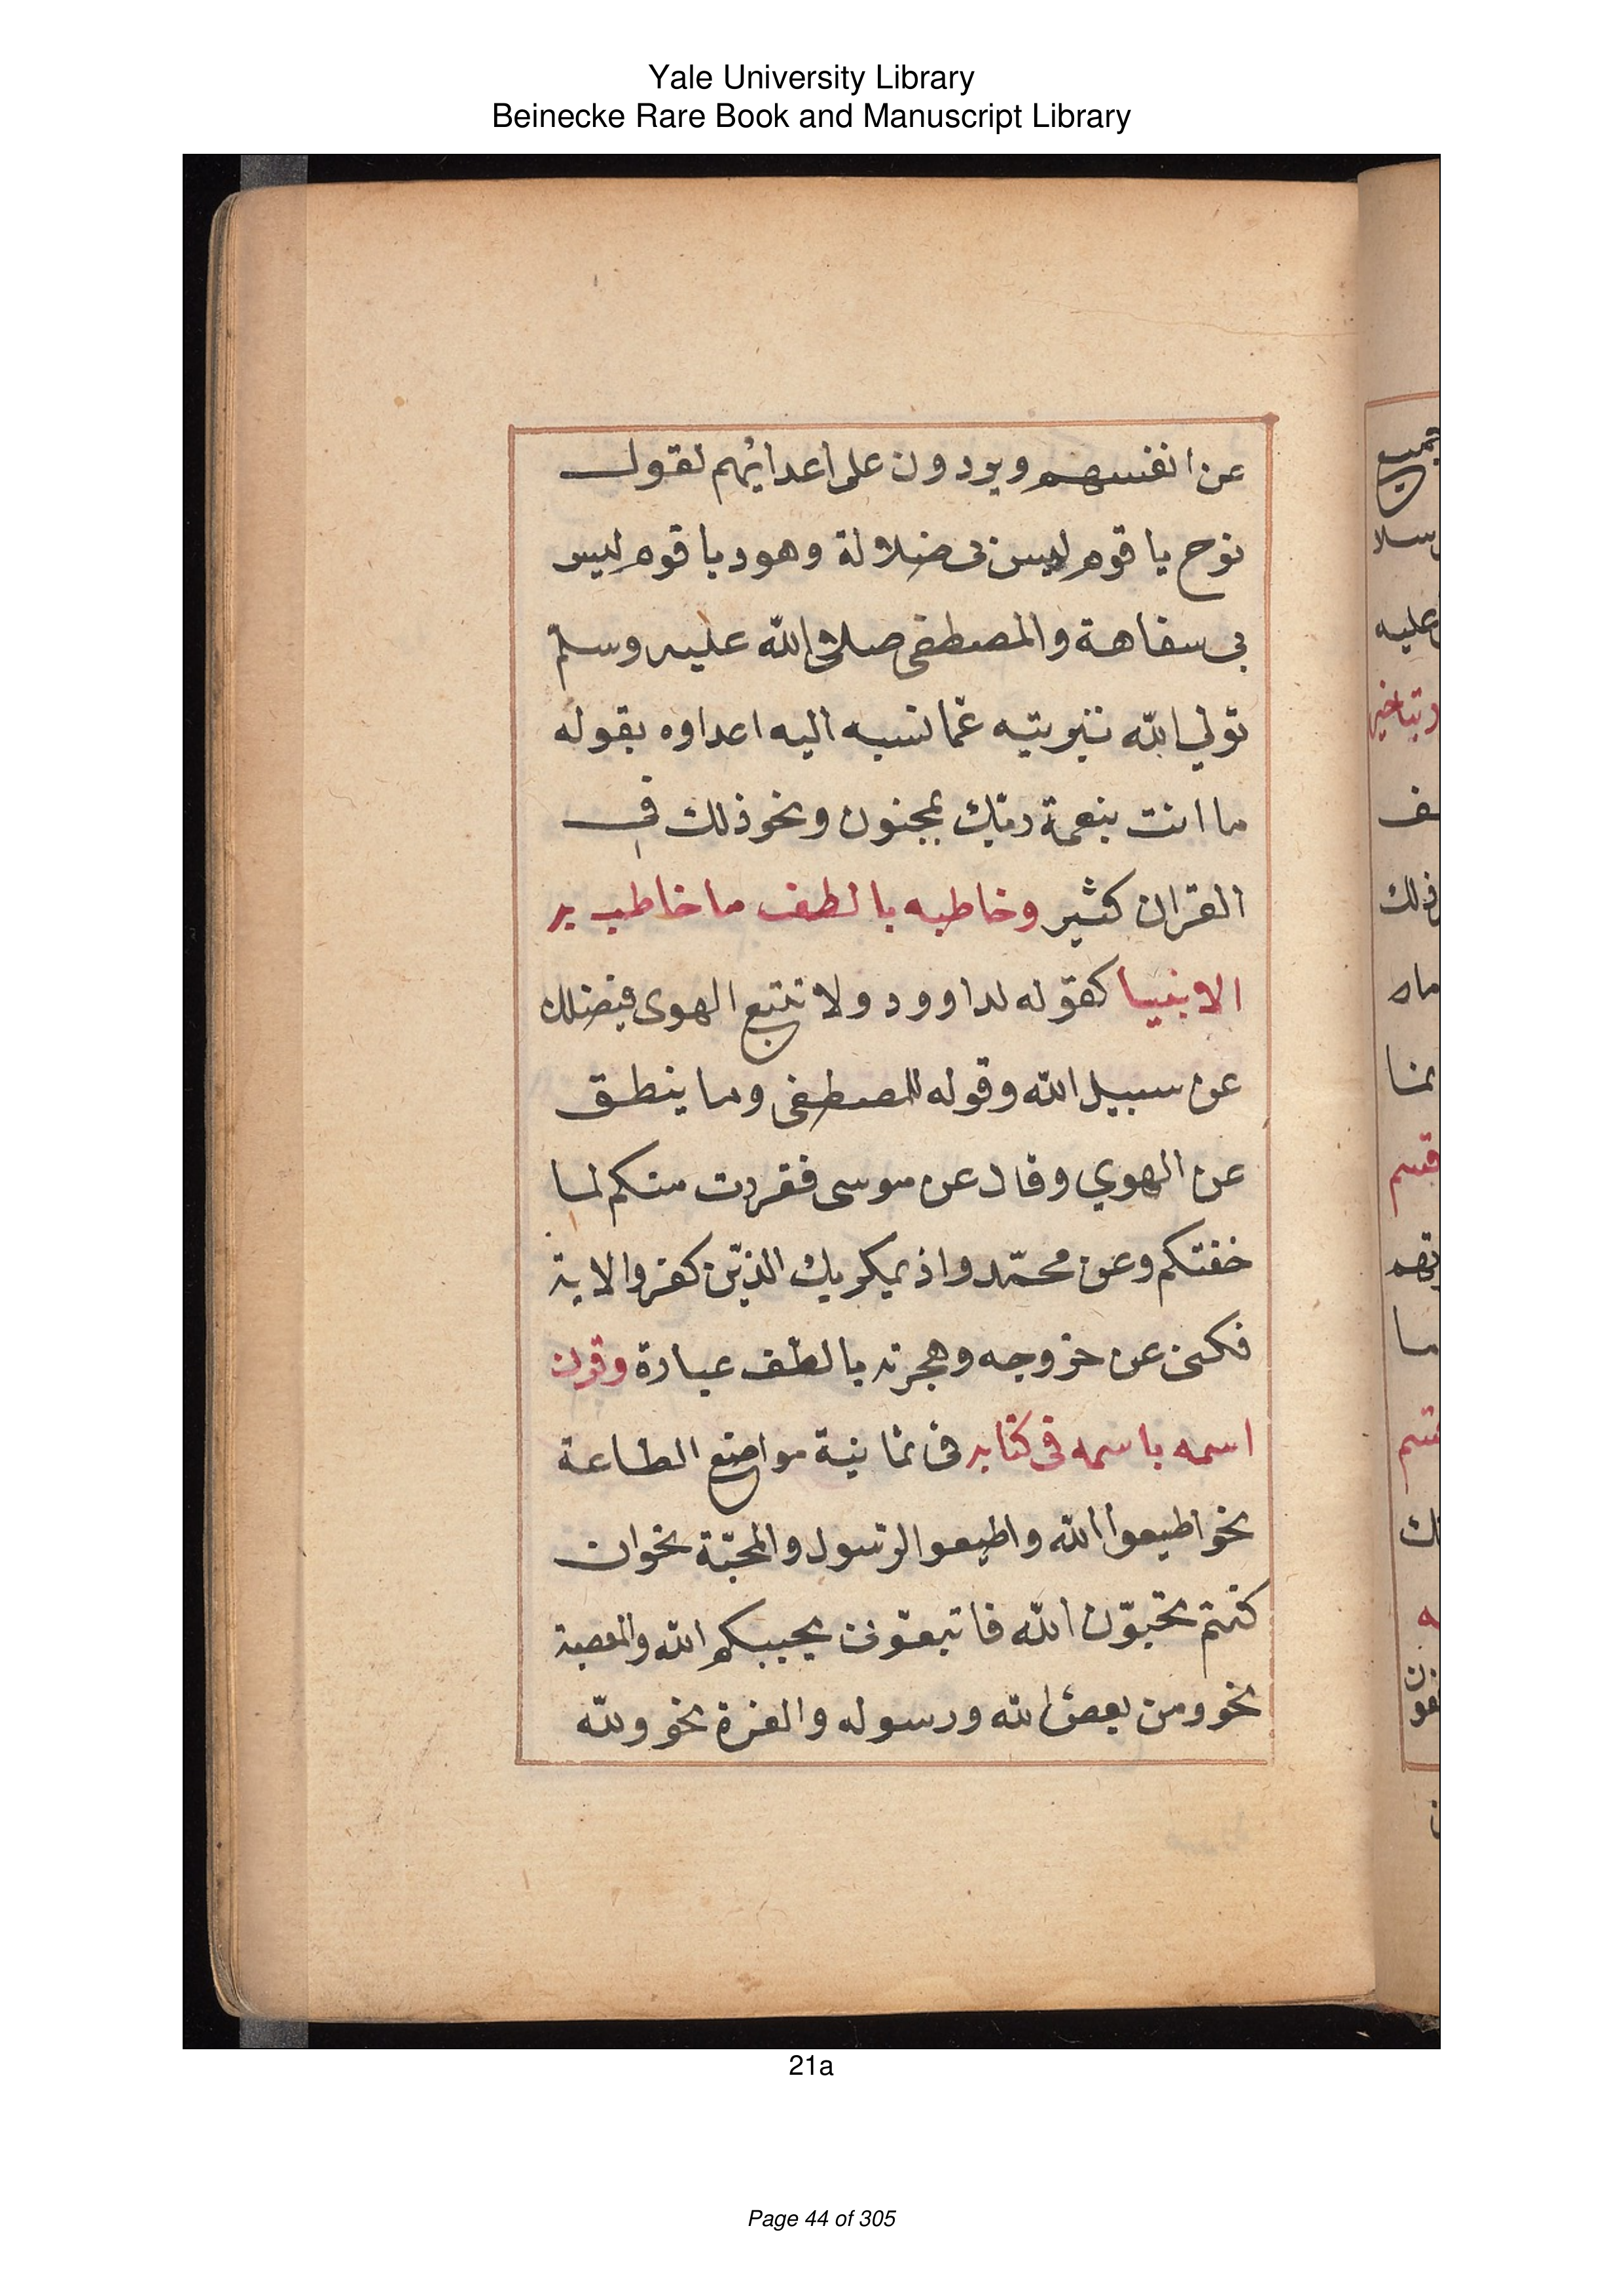 Yale University Library
Beinecke Rare Book and Manuscript Library
عن انفسهم ويردون على اعدائهم لقول
نوح يا قوم ليس بى ضلالة وهود يا قوم ليس
بي سفاهة والمصطفى صلى الله عليه وسلم
تولي الله تنزيته عمّا نسبه اليه اعداوه بقوله
ما انت بنعمة ربّك بمجنون ونحو ذلك في
القران كثير وخاطبه بالطف ما خاطب به
الانبيا كقوله لداوود ولا تتبع الهوى فيضلك
عن سبيل الله وقوله للمصطفى وما ينطق
عن الهوي وقال عن موسى ففررت منكم لما
خفتكم وعن محمّد واذ يمكر بك الذين كفروا الاية
فكنى عن خروجه وهجرته بالطف عبارة وقرن
اسمه باسمه في كتابه في ثمانية مواضع الطاعة
نحو اطيعوا الله واطيعوا الرّسول والمحبّة نحو ان
كنتم تحبّون الله فاتبعوني يحببكم الله والمعصية
نحو ومن يعص الله ورسوله والعزة نحو ولله
21a
Page 44 of 305